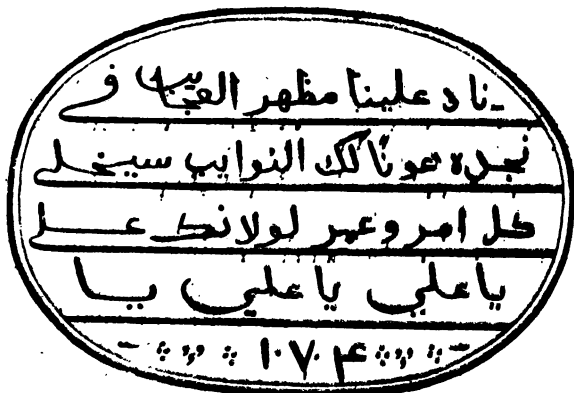 ناد علينا مظهر العجايب في
نجده عونا لك النوايب سينجلي
كل امر وعهر لولانك علي
يا علي يا علي يا
١٠٧٤